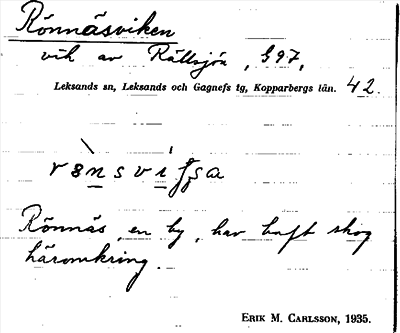 Rönnäsviken
vik av Rällsjön, G97,
Leksands sn, Leksands och Gagnefs tg, Kopparbergs län. 42.
Rönnäs, en by, har haft skog
häromkring.
ERIK M. CARLSSON, 1935.